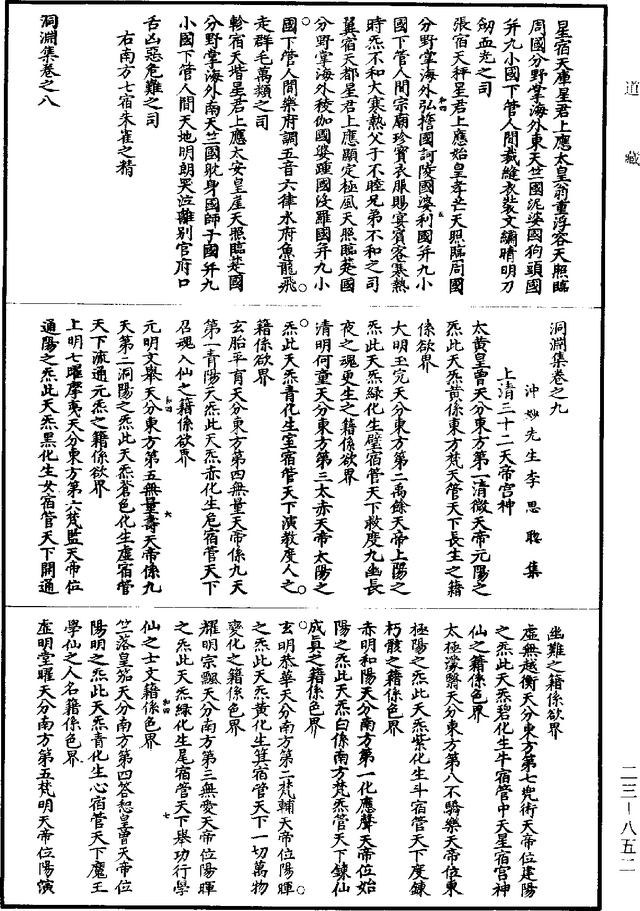 道藏
星宿天庫星君上應太皇翁重浮容天照臨
周國分野掌海外東天竺國泥婆國狗頭國
并九小國下管人間裁縫衣裳文繡晴明刀
劒血光之司
張宿天秤星君上應始皇孝芒天照臨周國
分野掌海外弘擔國訶陵國婆利國并九小
國下管人間宗廟珍寶衣服賜宴賓客寒熱
時炁不和大寒熱父子不睦兄弟不和之司
翼宿天都星君上應顯定極風天照臨楚國
分野掌海外稜伽國婆踵國沒羅國并九小
國下管人間樂府調五音六律水府魚龍飛
走群毛萬類之司
軫宿天堦星君上應太安皇崖天照臨楚國
分野掌海外南天竺國躭身國師子國并九
小國下管人間天地明朗哭泣離別官府口
舌凶惡危難之司
右南方七宿朱雀之精
洞淵集卷之八
洞淵集卷之九
沖妙先生李思聰集
上清三十二天帝宮神
太黃皇曾天分東方第一清微天帝元陽之
炁此天炁黃係東方梵天管天下長生之籍
係欲界
大明玉完天分東方第二禹餘天帝上陽之
炁此天炁綠化生壁宿管天下救度九幽長
夜之魂更生之籍係欲界
清明何童天分東方第三太赤天帝太陽之
炁此天炁青化生室宿管天下演教度人之
籍係欲界
玄胎平育天分東方第四無量天帝係九天
第一青陽天炁此天炁赤化生危宿管天下
召魂入仙之籍係欲界
元明文舉天分東方第五無量壽天帝係九
天第二洞陽之炁此天炁蒼色化生虛宿管
天下流通元炁之籍係欲界
上明七曜摩夷天分東方第六梵監天帝位
通陽之炁此天炁黑化生女宿管天下開通
幽難之籍係欲界
虛無越衡天分東方第七兜術天帝位建陽
之炁此天炁碧化生牛宿管中天星宿宮神
仙之籍係色界
太極濛翳天分東方第八不驕樂天帝位東
極陽之炁此天炁紫化生斗宿管天下度鍊
朽骸之籍係色界
赤明和陽天分南方第一化應聲天帝位始
陽之炁此天炁白係南方梵炁管天下鍊仙
成真之籍係色界
玄明恭華天分南方第二梵輔天帝位陽暉
之炁此天炁黃化生箕宿管天下一切萬物
變化之籍係色界
耀明宗飄天分南方第三無愛天帝位陽暉
之炁此天炁綠化生尾宿管天下舉功行學
仙之士文籍係色界
竺落皇笳天分南方第四答恕皇曾天帝位
陽明之炁此天炁青化生心宿管天下魔王
學仙之人名籍係色界
虛明堂曜天分南方第五梵明天帝位陽演
二三—八五二